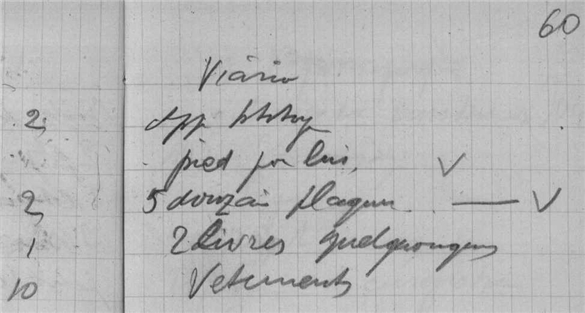 60
Viário
2 app photog
pied pr lui V
2 5 douzai plaques — V
1 2 livres quelquonques
10 Vetements